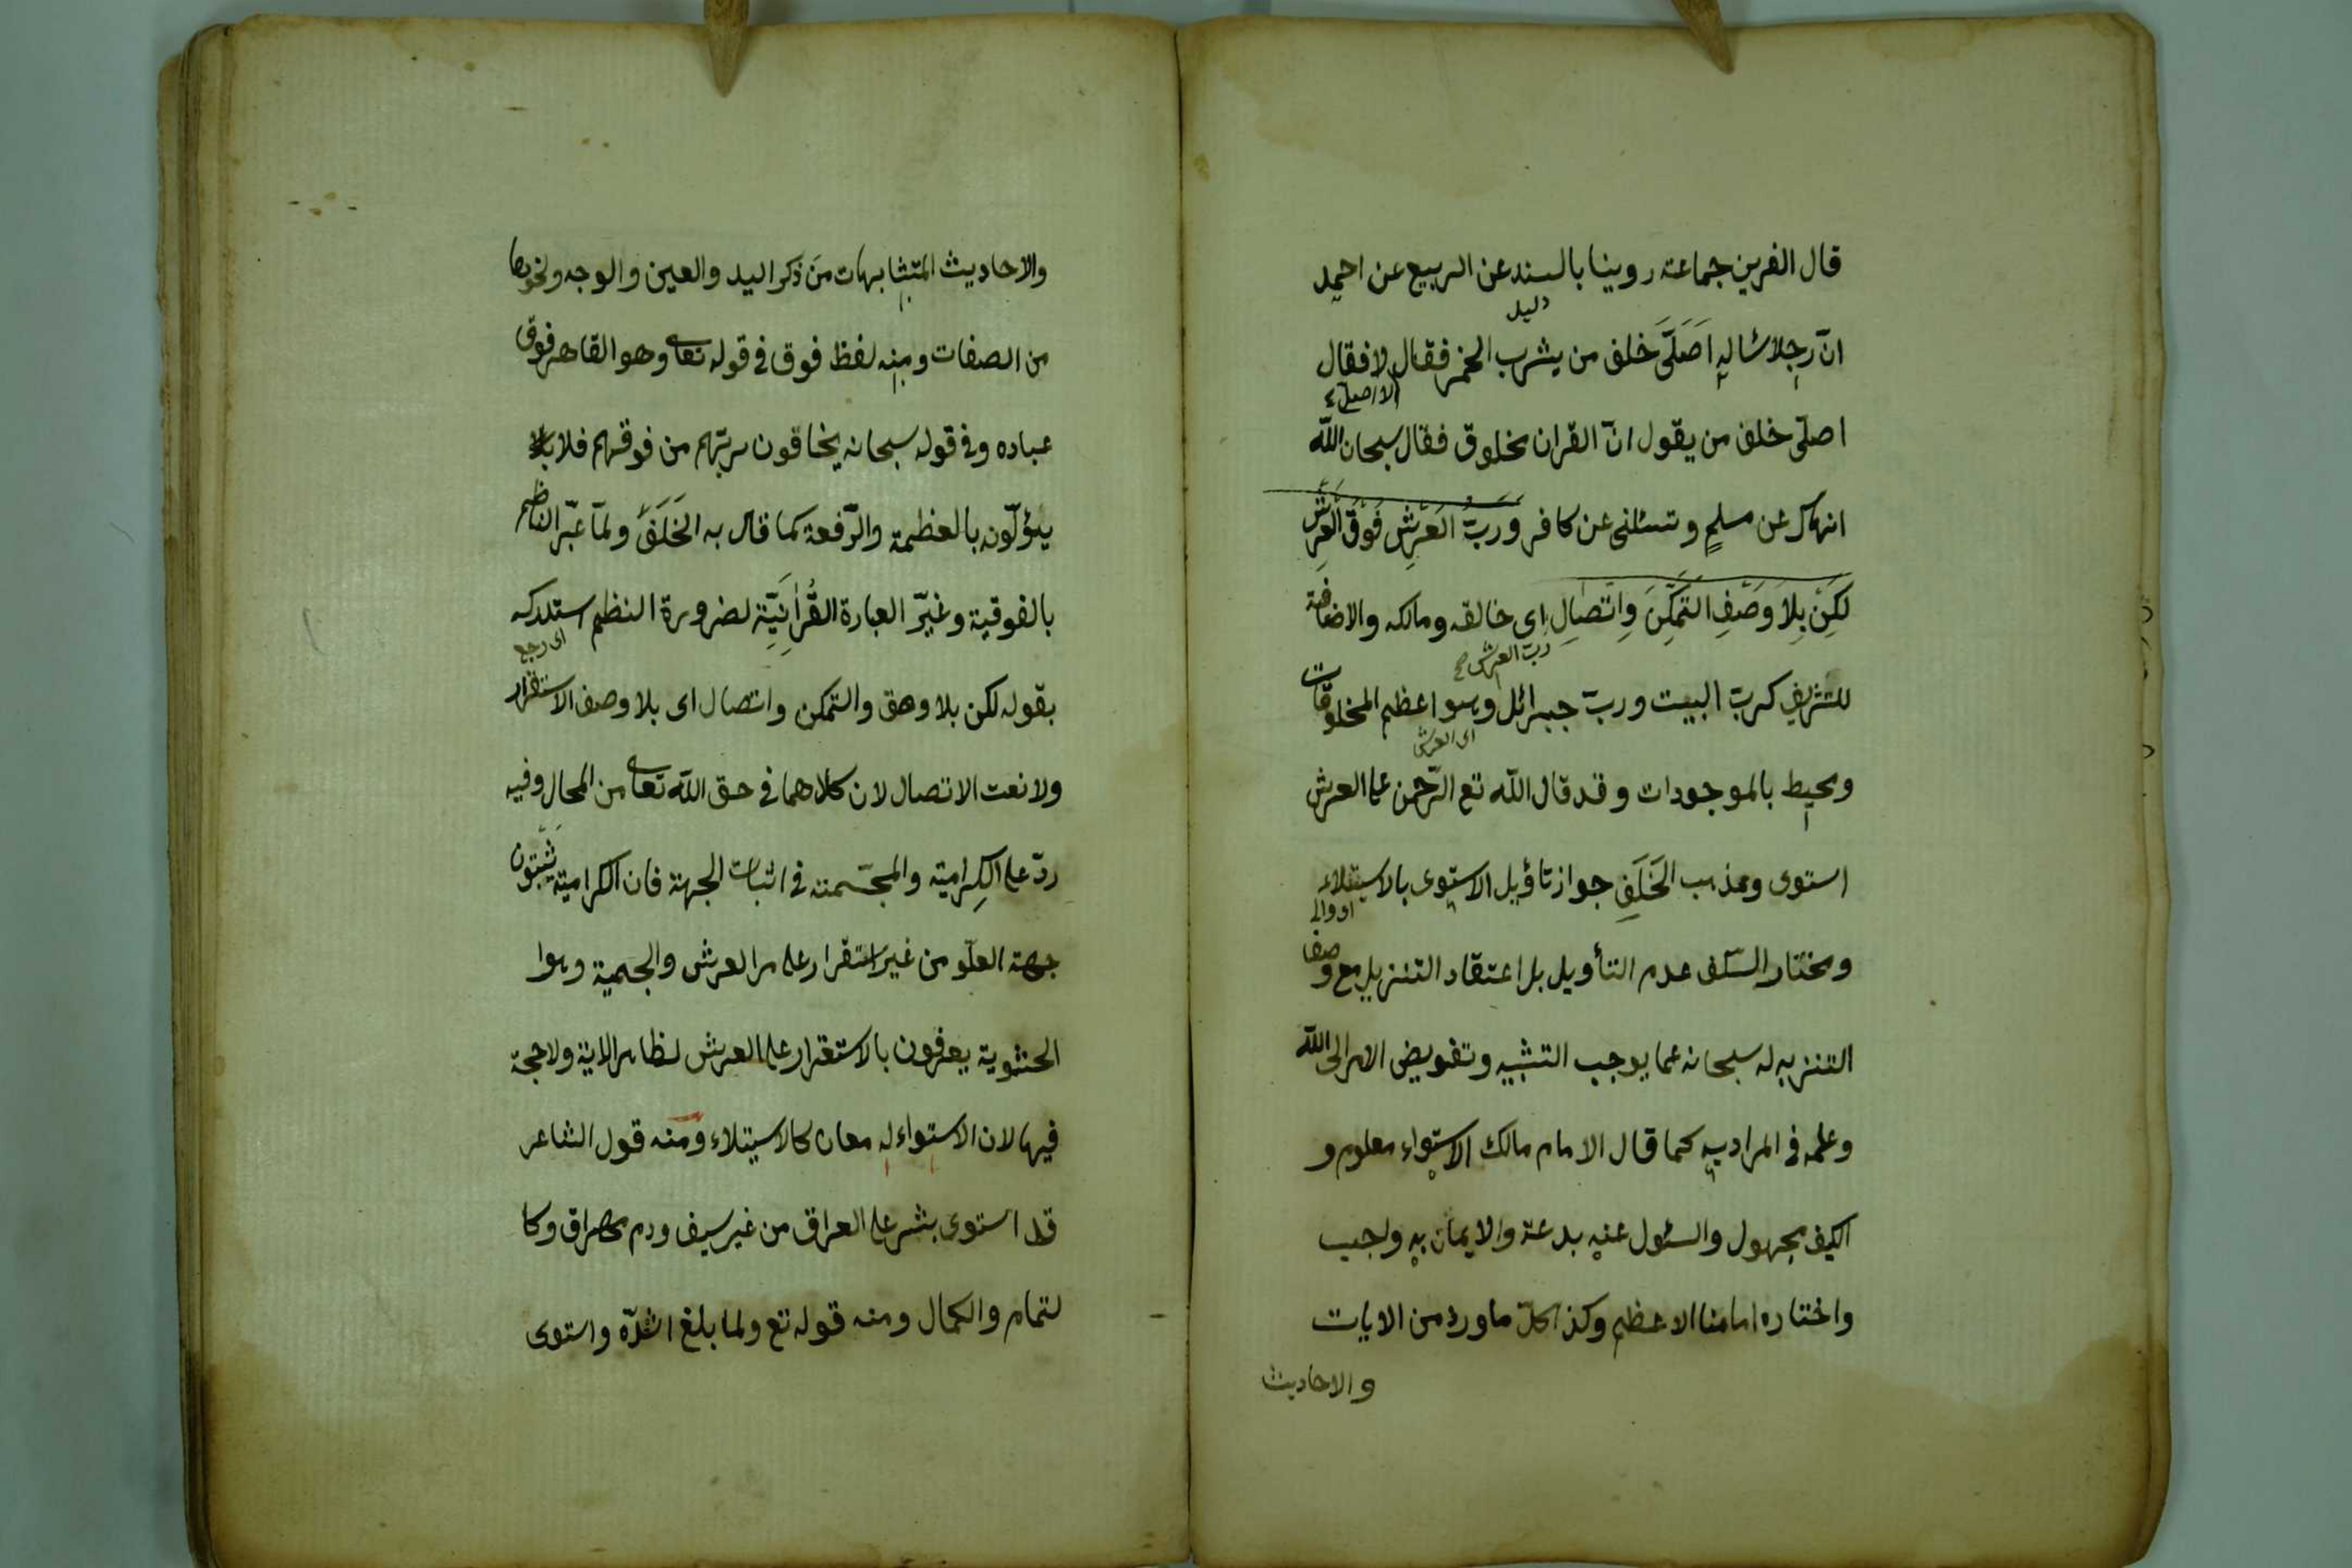 قال الفرين جماعته روينا بالسند عن الربيع عن احمد
دليل
انّ رجلا سئاله اَصَلَّى خلف من يشرب الخمر فقال لا فقال
اصلّى خلف من يقول انّ القران مخلوق فقال سبحان الله
انهاك عن مسلمٍ وتسئلنى عن كافر وَرَبُّ العَرْشِ فَوْقَ العَرْشِ
لكِنْ بِلَا وَصْفِ التَمَكُّنِ وَاتّصَالِ اى خالقه ومالكه والاضافة
ربّ العرش صح
للتشريف كربّ البيت وربّ جبرائل وهو اعظم المخلوقات
اى العرش
ومحيط بالموجودات وقد قال الله تع الرّحمن على العرش
استوى ومذهب الخَلَفِ جواز تاؤيل الاستوى بالاستيلاء
ومختار السّلف عدم التأويل بل اعتقاد التنزيل مع وصف
التنزيه له سبحانه عما يوجب التشبيه وتفويض الامر الى الله
وعلمه فى المراد به كما قال الامام مالك الاستواء معلوم و
الكيف مجهول والسئول عنه بدعة والايمان به واجب
واختاره امامنا الاعظم وكذا كلّ ما ورد من الايات
والاحاديث
والاحاديث المتشابهات من ذكر اليد والعين والوجه ونحوها
من الصفات ومنه لفظ فوق فى قوله تعالى وهو القاهر فوق
عباده وفى قوله سبحانه يخافون ربّهم من فوقهم فلا
يئولّونه بالعظمة والرّفعة كما قال به الخَلَفُ ولمّا عبّر الناظم
بالفوقية وغيّر العبارة القُرآنِيّة لضرورة النظم استدركه
اى رجع
بقوله لكن بلا وصف والتمكن واتصال اى بلا وصف الاستقرار
ولا نعت الاتصال لان كلاهما فى حق الله تعالى من المحال وفيه
ردّ على الكِرامية والمجسّمة فى اثبات الجهة فان الكرامية يثبتون
جهة العلّو من غير استقرار على العرش والجسمية وهوا
الحشوية يعرفون بالاستقرار على العرش لظاهر الاية ولا حجة
فيها لان الاستواء له معان كالاستيلاء ومنه قول الشاعر
قد استوى بشر على العراق من غير سيف ودم مهراق وكا
لتمام والكمال ومنه قوله تع ولما بلغ اشدّه واستوى